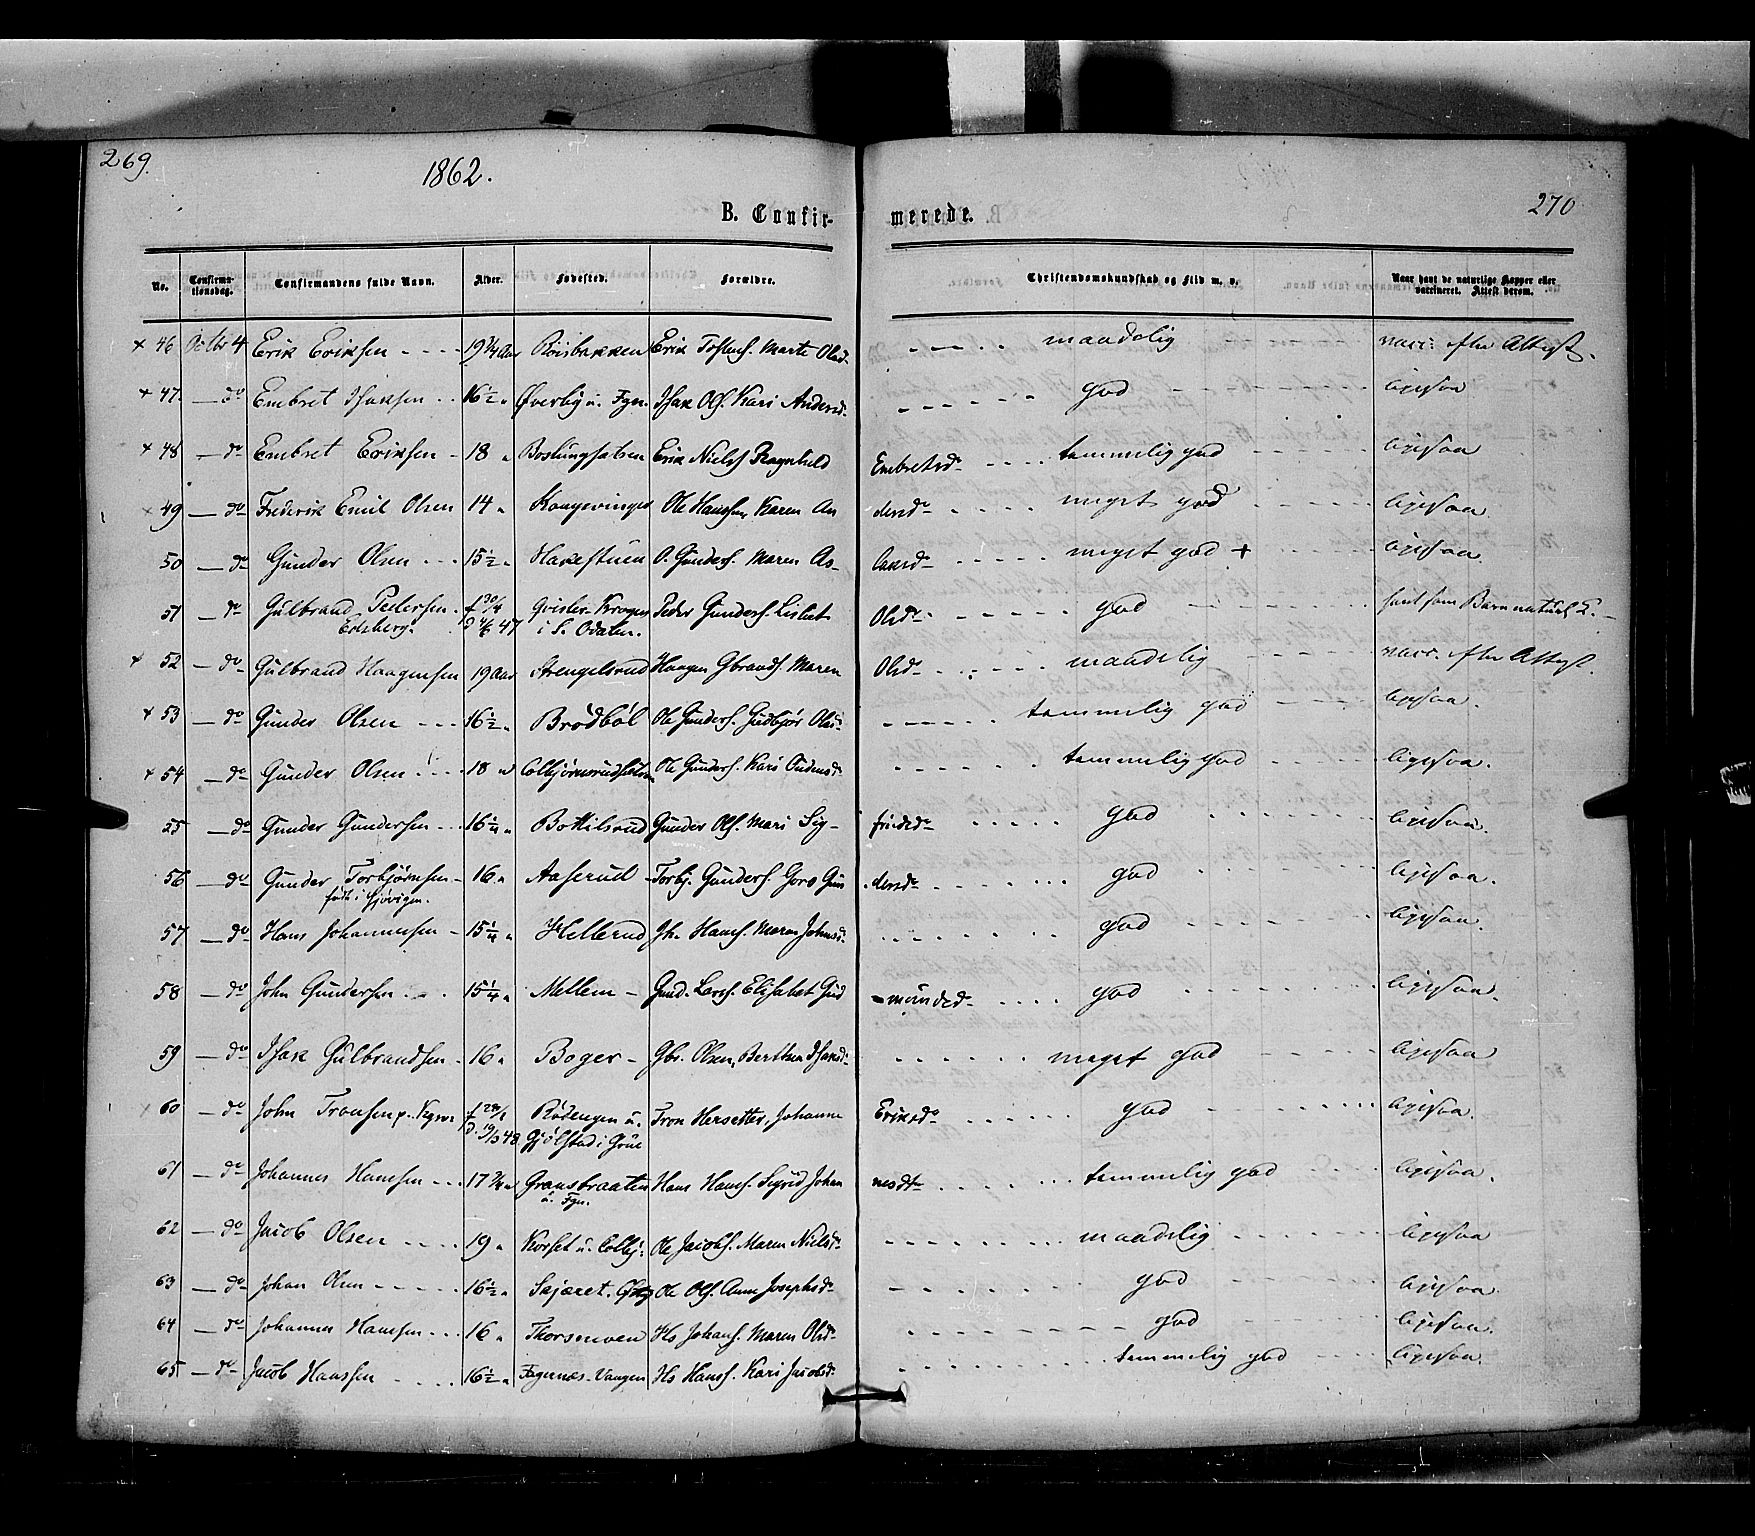 269.
1862.
270
B. Confir-
merede.
No.
Confirma-
tionsdag.
Confirmandens fulde Navn.
Alder.
Fødested.
Forældre.
Christendomskundskab og Flid m. v.
Naar havt de naturlige Kopper eller
vaccineret. Attest derom.
+ 46 Octbr 4 Erik Eriksen - - - - 19 3/4 Aar Röisbakken Erik Tostens. Marte Olsd. - - - - maadelig vacc. efter Attest.
+ 47 — do Embret Isaksen - - 16 1/2 " Øverby u. Fgn. Isak Ols. Kari Andersd. - - - - god - - - - ligesaa
+ 48 — do Embret Eriksen - 18 " Erik Niels. Ragnhild Embretsd. - - - - temmelig god - - - - ligesaa
49 — do Frederik Emil Olsen 14 " Kongsvinger Ole Hanssen, Karen An dersd. - - - - meget god - - - - ligesaa
50 — do Gunder Olsen - - - 15 1/2 " Hakestuen O. Gunders. Maren As- laksd. - - - - meget god + ligesaa.
51 — do Gulbrand Pedersen - f 30/4 Peder Gunders. Lisbet Olsd. - - - - god - - - - havt som Barn naturl. K. -
Edsberg. 47 i S. Odalen.
+ 52 — do Gulbrand Haagensen 19 Aar Strengelsrud Haagen Gbrands. Maren Olsd. - - - - maadelig vacc. efter Attest.
+ 53 — do Gunder Olsen - - - 16 1/2 " Brödböl Ole Gunders. Gudbjör Olsd. - - - - temmelig god - - - - ligesaa.
+ 54 — do Gunder Olsen - - - 18 " Ole Gunders. Kari - - - - temmelig god ligesaa.
55 — do Gunder Gundersen - - - 16 1/4 " Bottilsrud Gunder Ols. Mari Sig- fridsd. - - - - god - - - - ligesaa.
56 — do Gunder Torbjörnsen - 16 " Aaserud Torbj. Gunders. Goro Gun dersd. - - - - god ligesaa.
född i Gjövigen.
57 — do Hans Johannesen - 15 1/4 " Hellerud Jh. Hans. Maren Johnsd. - - - - god - - - - ligesaa.
58 — do John Gundersen - - 15 1/4 " Mellem - Gund. Lars. Elisabet Gud -mundsd. - - - - god - - - - ligesaa.
59 — do Isak Gulbrandsen - 16 " Boger - Gbr. Olsen, Berthea Isaksd. - - - - meget god - - - - ligesaa
60 — do John Tronsen f 28/1 Rödengen u. Tron Hersetter, Johanne Eriksd. - - - - god - - - - ligesaa.
d. 19/3 48 Gjölstad i Grue
61 — do Johannes Hansen - - - 17 3/4 " Gransbraaten Hans Hans. Sigrid Johan nesdt. - - - - temmelig god - - - - ligesaa.
u. Fgn.
62 — do Jacob Olsen - - - - 19 " Korset u. Colbj: Ole Jacobs. Maren Nielsd. - - - - maadelig - - - - ligesaa
63 — do Johan Olsen - - - - 16 1/2 " Skjæret. Ole Ols. Anne Josephsd. - - - - god - - - - ligesaa
64 — do Johannes Hansen - - - 16 " Thorsmoen Hs Johans. Maren Olsd. - - - - god ligesaa.
65 — do Jacob Hanssen - - - - 16 1/2 " Fagernæs-Vangen Hs Hans. Kari Jacobsd. - - - - temmelig god - - - - ligesaa.